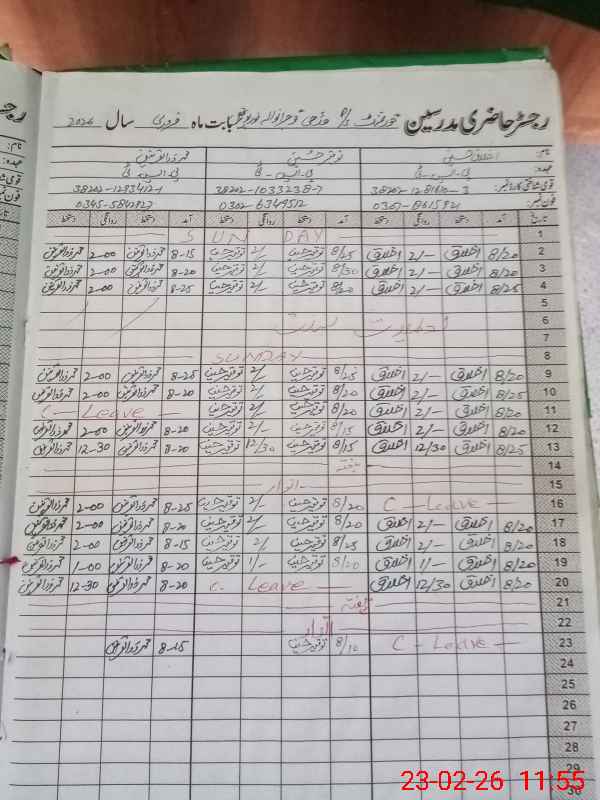 رجسٹر حاضری مدرسین گورنمنٹ بابت ماہ فروری سال 2026
نام: اخلاق حسین توقیر حسین محمد ذوالقرنین
عہدہ: پی۔ایس۔ٹی پی۔ایس۔ٹی پی۔ایس۔ٹی
قومی شناختی کارڈ نمبر: 38202-1281610-3 38202-1033238-7 38202-1283412-1
فون نمبر: 0307-8615921 0302-6349512 0345-5842927
تاریخ آمد دستخط روانگی دستخط آمد دستخط روانگی دستخط آمد دستخط روانگی دستخط
1 SUNDAY
2 8/20 اخلاق 2/- اخلاق 8/25 توقیر حسین 2/- توقیر حسین 8-15 محمد ذوالقرنین 2-00 محمد ذوالقرنین
3 8/20 اخلاق 2/- اخلاق 8/20 توقیر حسین 2/- توقیر حسین 8-20 محمد ذوالقرنین 2-00 محمد ذوالقرنین
4 8/25 اخلاق 2/- اخلاق 8/20 توقیر حسین 2/- توقیر حسین 8-25 محمد ذوالقرنین 2-00 محمد ذوالقرنین
5
6
7
8 SUNDAY
9 8/20 اخلاق 2/- اخلاق 8/25 توقیر حسین 2/- توقیر حسین 8-25 محمد ذوالقرنین 2-00 محمد ذوالقرنین
10 8/25 اخلاق 2/- اخلاق 8/20 توقیر حسین 2/- توقیر حسین 8-20 محمد ذوالقرنین 2-00 محمد ذوالقرنین
11 8/20 اخلاق 2/- اخلاق 8/20 توقیر حسین 2/- توقیر حسین C - Leave -
12 8/20 اخلاق 2/- اخلاق 8/15 توقیر حسین 2/- توقیر حسین 8-20 محمد ذوالقرنین 2-00 محمد ذوالقرنین
13 8/25 اخلاق 12/30 اخلاق 8/15 توقیر حسین 12/30 توقیر حسین 8-20 محمد ذوالقرنین 12-30 محمد ذوالقرنین
14 ہفتہ
15 اتوار
16 C - Leave - 8/20 توقیر حسین 2/- توقیر حسین 8-25 محمد ذوالقرنین 2-00 محمد ذوالقرنین
17 8/20 اخلاق 2/- اخلاق 8/20 توقیر حسین 2/- توقیر حسین 8-20 محمد ذوالقرنین 2-00 محمد ذوالقرنین
18 8/20 اخلاق 2/- اخلاق 8/25 توقیر حسین 2/- توقیر حسین 8-15 محمد ذوالقرنین 2-00 محمد ذوالقرنین
19 8/20 اخلاق 1/- اخلاق 8/20 توقیر حسین 1/- توقیر حسین 8-20 محمد ذوالقرنین 1-00 محمد ذوالقرنین
20 8/20 اخلاق 12/30 اخلاق C- Leave - 8-20 محمد ذوالقرنین 12-30 محمد ذوالقرنین
21 ہفتہ
22 اتوار
23 C - Leave - 8/10 توقیر حسین 8-15 محمد ذوالقرنین
24
25
26
27
28
29
30
23-02-26 11:55